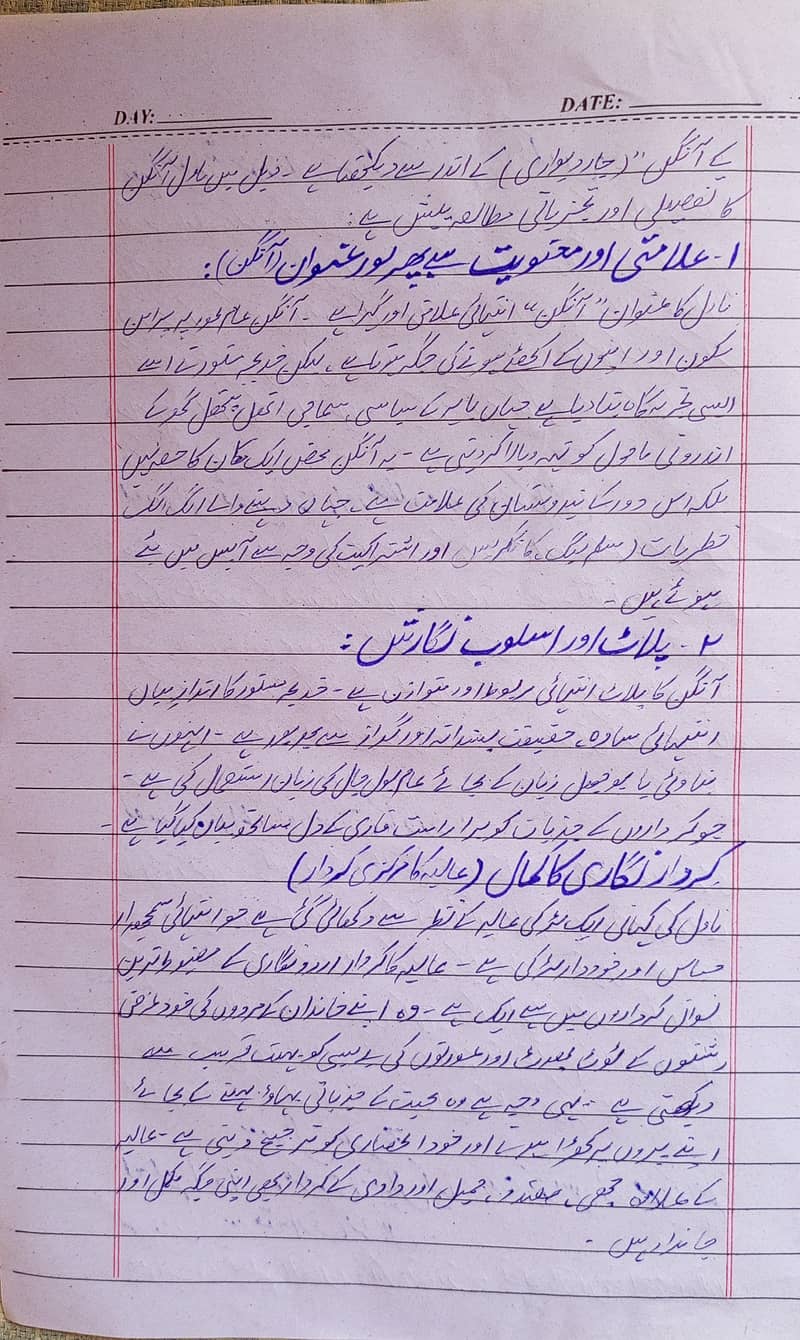 DAY:
DATE:
کے آنگن" (چار دیواری) کے اندر سے دیکھتا ہے ۔ ذیل میں ناول آنگن
کا تفصیلی اور تجزیاتی مطالعہ پیش ہے :
۱۔ علامتی اور معنویت سے بھرپور عنوان (آنگن) :
ناول کا عنوان "آنگن" انتہائی علامتی اور گہرا ہے ۔ آنگن عام طور پر پر امن
سکون اور اپنوں کے اکھٹے ہونے کی جگہ ہوتا ہے، لیکن خدیجہ مستور نے اسے
ایسی تجربہ گاہ بنا دیا ہے جہاں باہر کے سیاسی، سماجی اتھل پتھل گھر کے
اندرونی ماحول کو تہہ و بالا کر دیتی ہے ۔ یہ آنگن محض ایک مکان کا حصہ نہیں
بلکہ اس دور کے ہندوستان کی علامت ہے، جہاں رہنے والے الگ الگ
نظریات (مسلم لیگ، کانگریس اور اشتراکیت کی وجہ سے آپس میں بٹے
ہوئے ہیں ۔
۲۔ پلاٹ اور اسلوب نگارش :
آنگن کا پلاٹ انتہائی مربوط اور متوازن ہے ۔ خدیجہ مستور کا انداز بیاں
انتہائی سادہ، حقیقت پسندانہ اور گداز سے بھرپور ہے ۔ انہوں نے
بناوٹی یا بوجھل زبان کے بجائے عام بول چال کی زبان استعمال کی ہے ۔
جو کرداروں کے جذبات کو براہ راست قاری کے دل ساتھ بیان کیا گیا ہے ۔
کردار نگاری کا کمال (عالیہ کا مرکزی کردار)
ناول کی کہانی ایک لڑکی عالیہ کے نظر سے دکھائی گئی ہے جو انتہائی سمجھدار
حساس اور خوددار لڑکی ہے ۔ عالیہ کا کردار اردو نگاری کے مضبوط ترین
نسوانی کرداروں میں سے ایک ہے ۔ وہ اپنے خاندان کے مردوں کی خود غرضی
رشتوں کے ٹوٹ پھوٹ اور عورتوں کی بے بسی کو بہت قریب سے
دیکھتی ہے ۔ یہی وجہ ہے وہ محبت کے جذباتی بہاؤ بہنے کے بجائے
اپنے پیروں پر کھڑا ہونا اور خود انحصاری کو ترجیح دیتی ہے ۔ عالیہ
کے علاوہ چھمی، صفدر، جمیل اور دادی کے کردار بھی اپنی جگہ مکمل اور
جاندار ہیں ۔